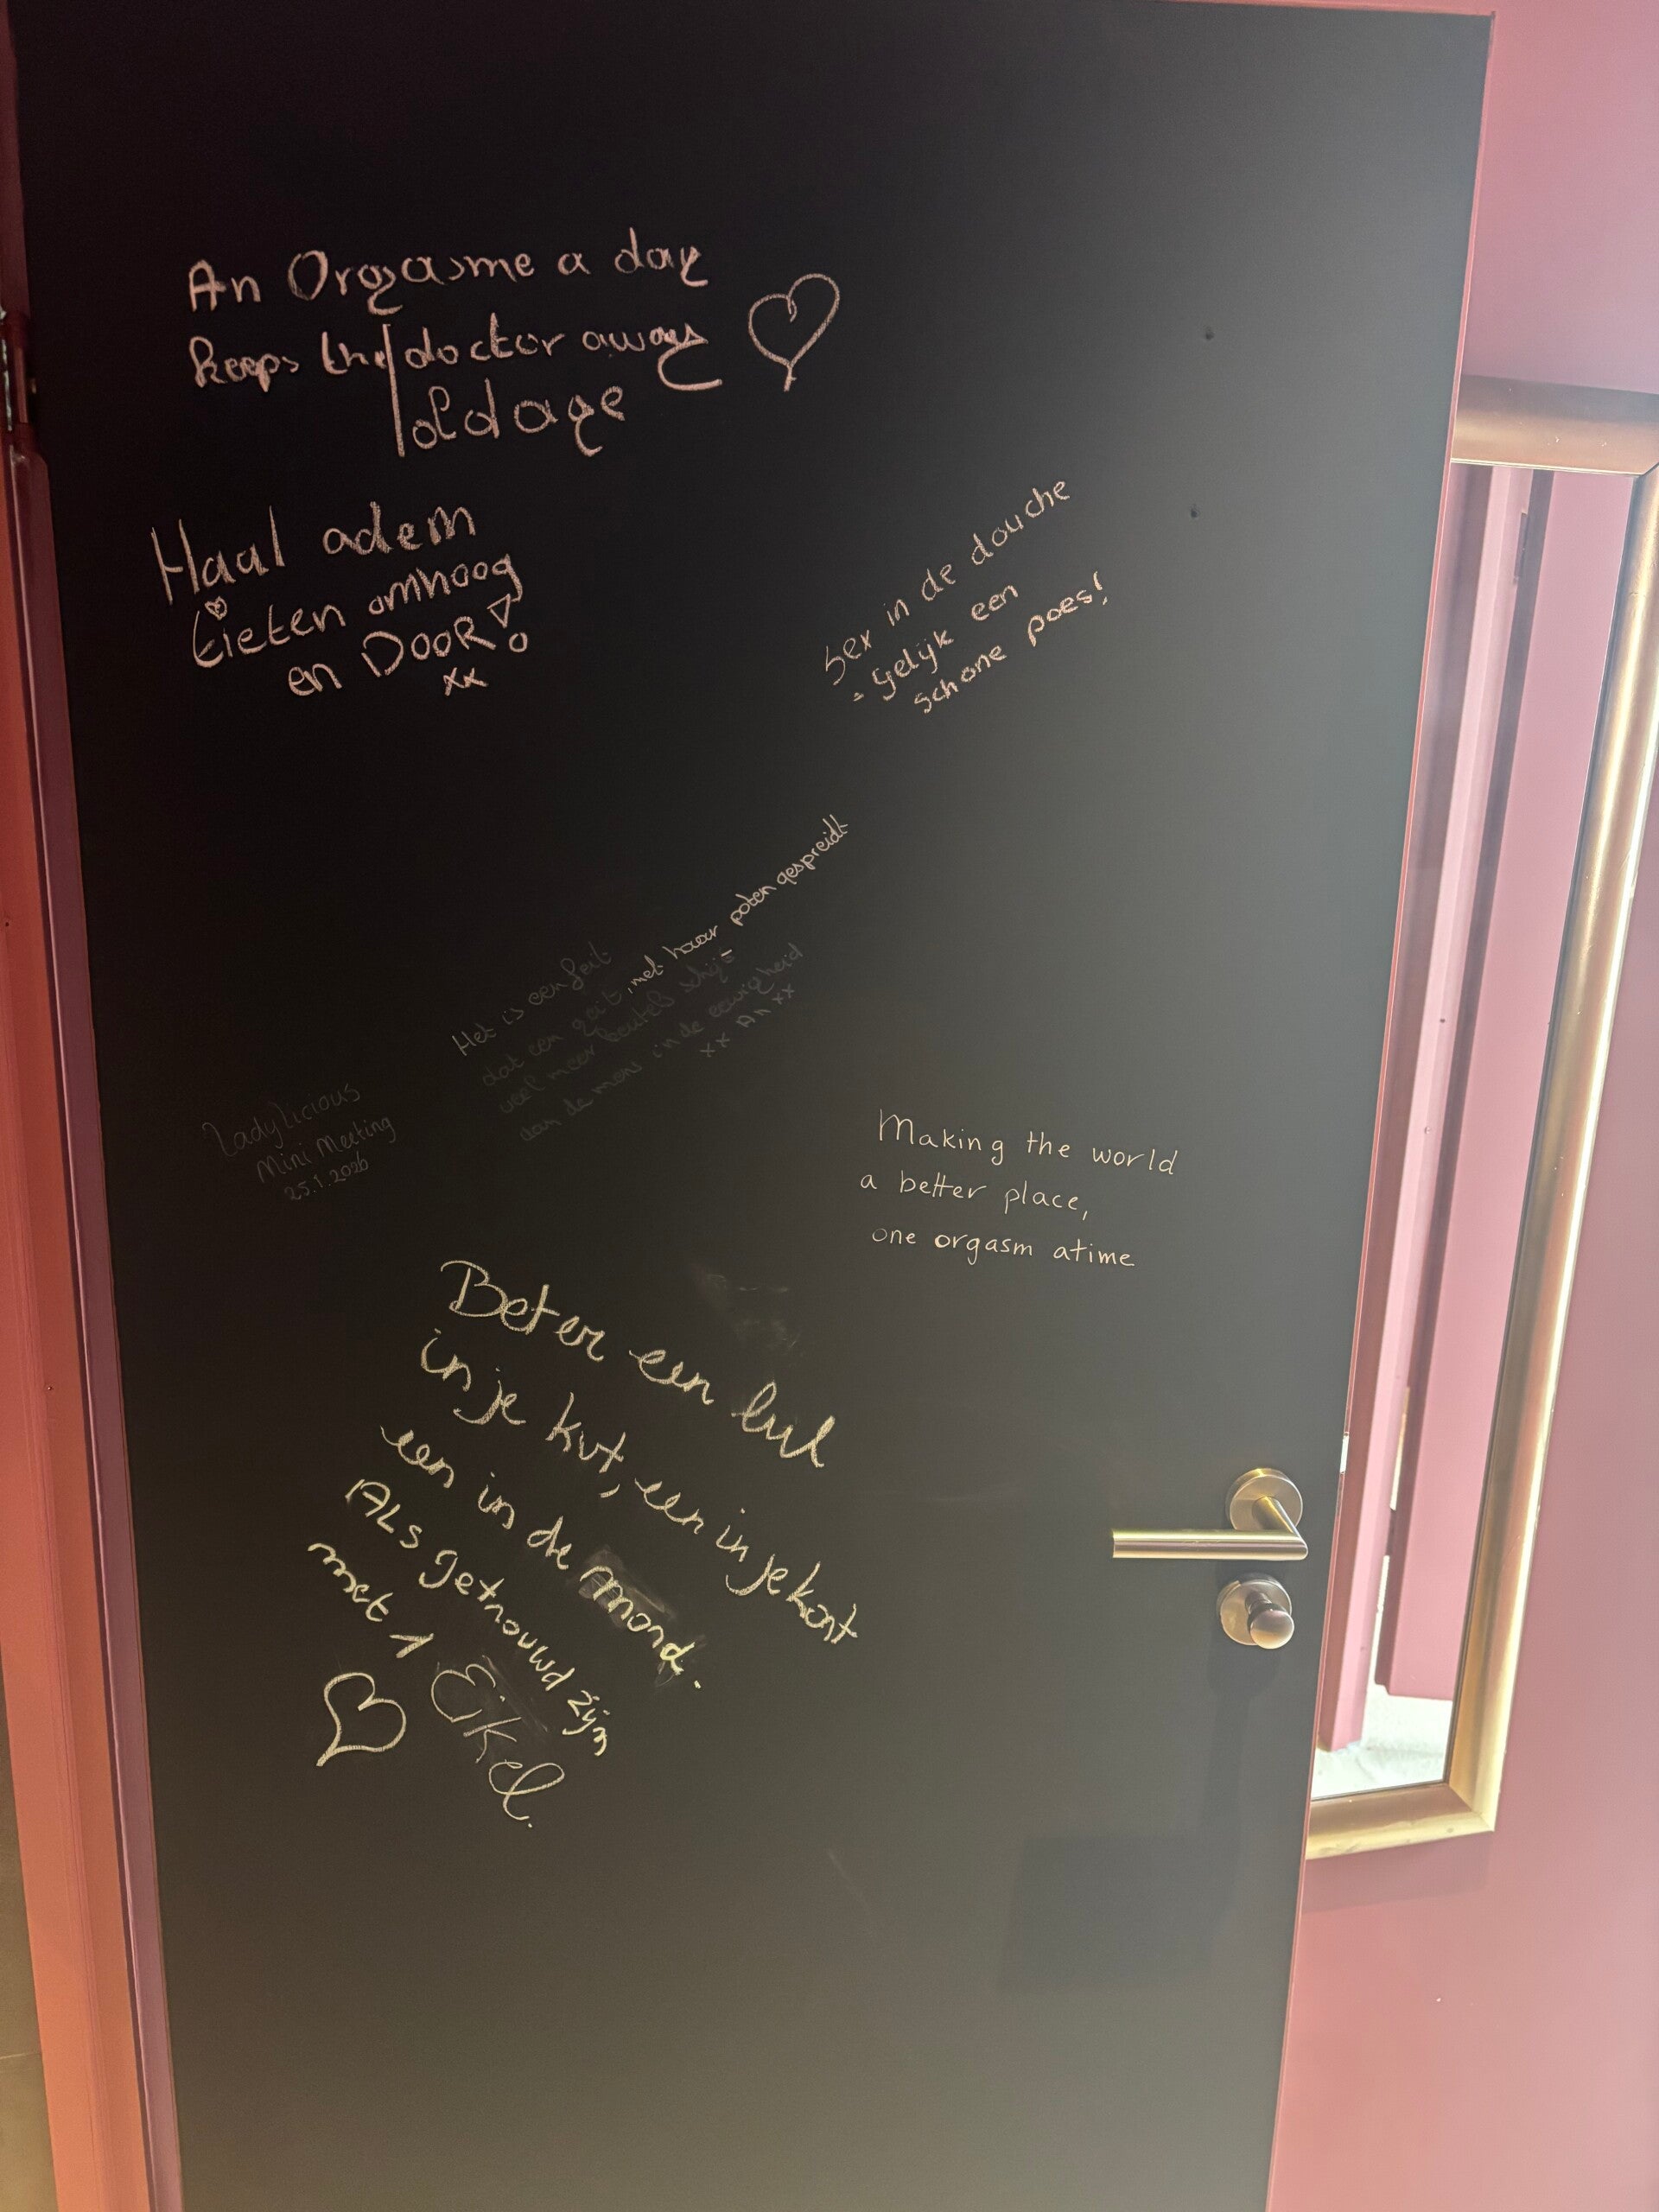 An Orgasme a day
keeps the doctor away
old age
Haal adem
tieten omhoog
en DOOR!
xx
Sex in de douche
= gelijk een
schone poes!
Het is een feit
dat een geit, met haar poten gespreidt
veel meer keutels schijt
dan de mens in de eeuwigheid
xx An xx
Ladylicious
Mini Meeting
25.1.2026
Making the world
a better place,
one orgasm atime
Beter een lul
in je kut, een in je kont
een in de mond.
ALs getrouwd zijn
met 1 Eikel.